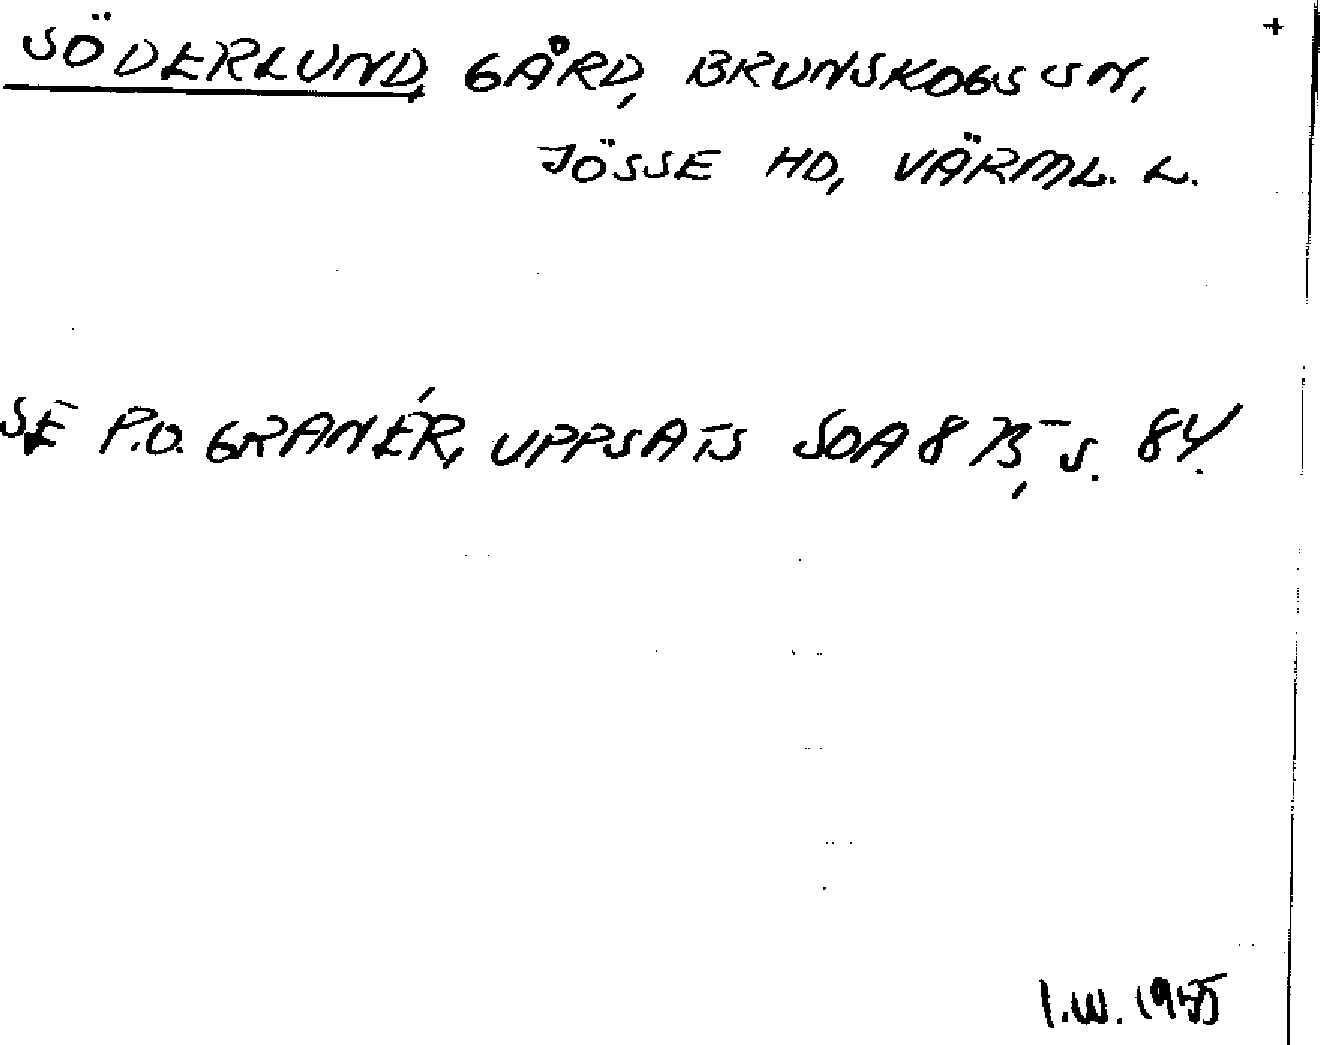 +
SÖDERLUND, GÅRD, BRUNSKOGS SN,
JÖSSE HD, VÄRML. L.
SE P.O. GRANÉR, UPPSATS SOA 875, S. 84.
I.W. 1955